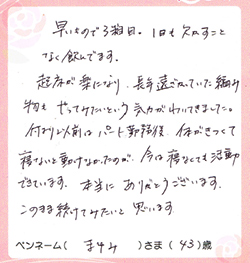 早いもので3ヶ月目。1日も欠かすこと
なく飲んでます。
起床が楽になり、長年遠ざかっていた編み
物も やってみたいという気力がわいてきました。
付より以前は パート勤務後、体がきつくて
寝ないと動けなかったのが、今は寝なくても活動
できています。本当に ありがとうございます。
このまま続けてみたいと 思います
ペンネーム( まサみ )さま(43)歳